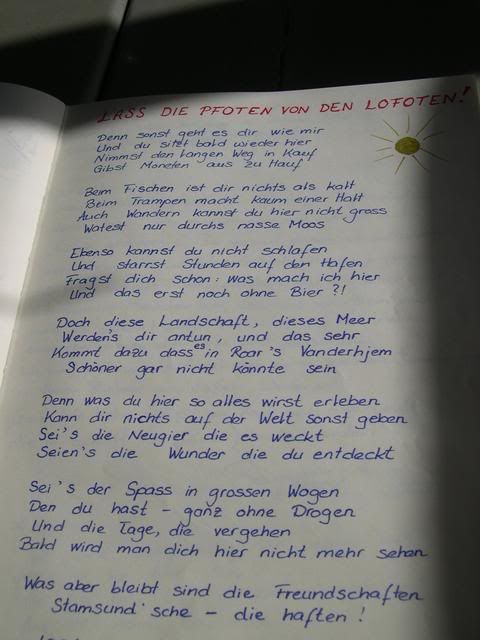 LASS DIE PFOTEN VON DEN LOFOTEN!
Denn sonst geht es dir wie mir
Und du sitzt bald wieder hier
Nimmst den langen Weg in Kauf
Gibst Moneten aus zu Hauf
Beim Fischen ist dir nichts als kalt
Beim Trampen macht kaum einer Halt
Auch Wandern kannst du hier nicht gross
Watest nur durchs nasse Moos
Ebenso kannst du nicht schlafen
Und starrst Stunden auf den Hafen
Fragst dich schon: was mach ich hier
Und das erst noch ohne Bier?!
Doch diese Landschaft, dieses Meer
Werden's dir antun, und das sehr
Kommt dazu dass es in Roar's Vanderhjem
Schöner gar nicht könnte sein
Denn was du hier so alles wirst erleben
Kann dir nichts auf der Welt sonst geben
Sei's die Neugier die es weckt
Seien's die Wunder die du entdeckt
Sei's der Spass in grossen Wogen
Den du hast - ganz ohne Drogen
Und die Tage, die vergehen
Bald wird man dich hier nicht mehr sehen
Was aber bleibt sind die Freundschaften
Stamsund'sche - die haften!